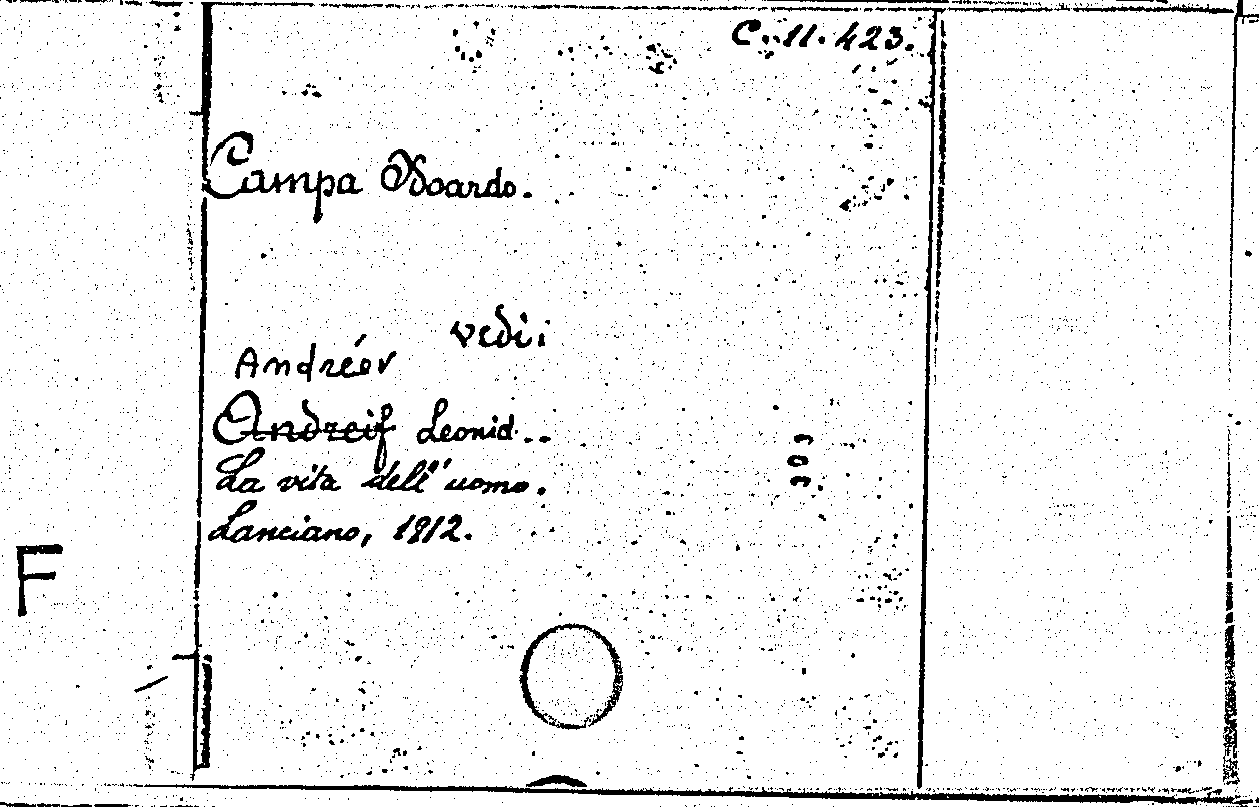 C. 11. 423.
Campa Odoardo.
vedi:
Andréev
Andreif Leonid..
La vita dell'uomo.
Lanciano, 1912.
303
F